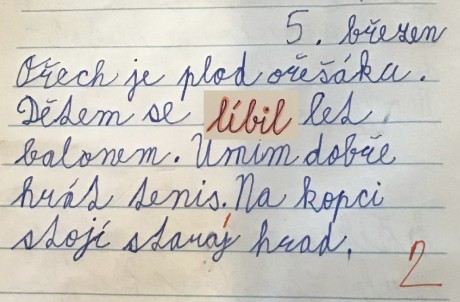 5. březen
Ořech je plod ořešáku.
Dětem se líbil let
balonem. Umím dobře
hrát tenis. Na kopci
stojí starý hrad.
2